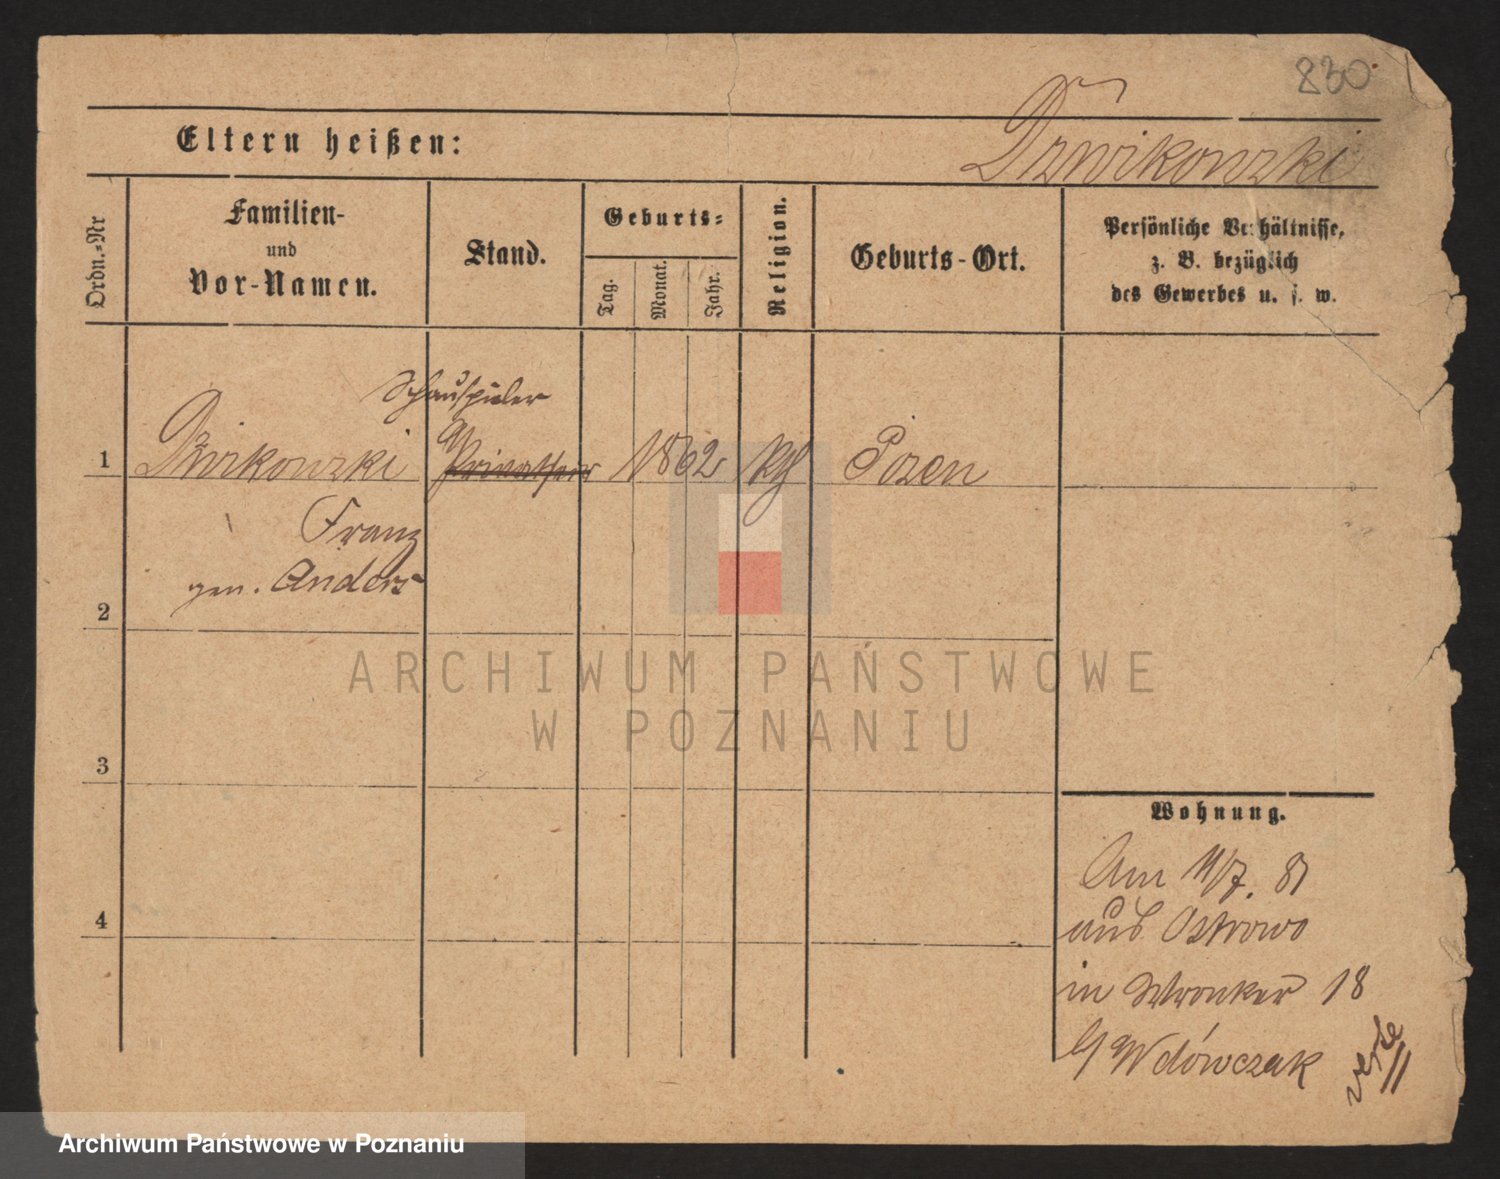 830
Eltern heißen:
Drwikowski
Ordn.-Nr
Familien-
und
Vor-Namen.
Stand.
Geburts-
Tag.
Monat.
Jahr.
Religion.
Geburts-Ort.
Persönliche Verhältnisse,
z. B. bezüglich
des Gewerbes u. s. w.
Schauspieler
1 Drwikowski 1862 Posen
Franz
gen. Anders
2
3
4
ARCHIWUM PAŃSTWOWE
W POZNANIU
Wohnung.
Am 11/7. 81
aus Ostrowo
in Wronker 18
b/ Wdówczak
verte
Archiwum Państwowe w Poznaniu